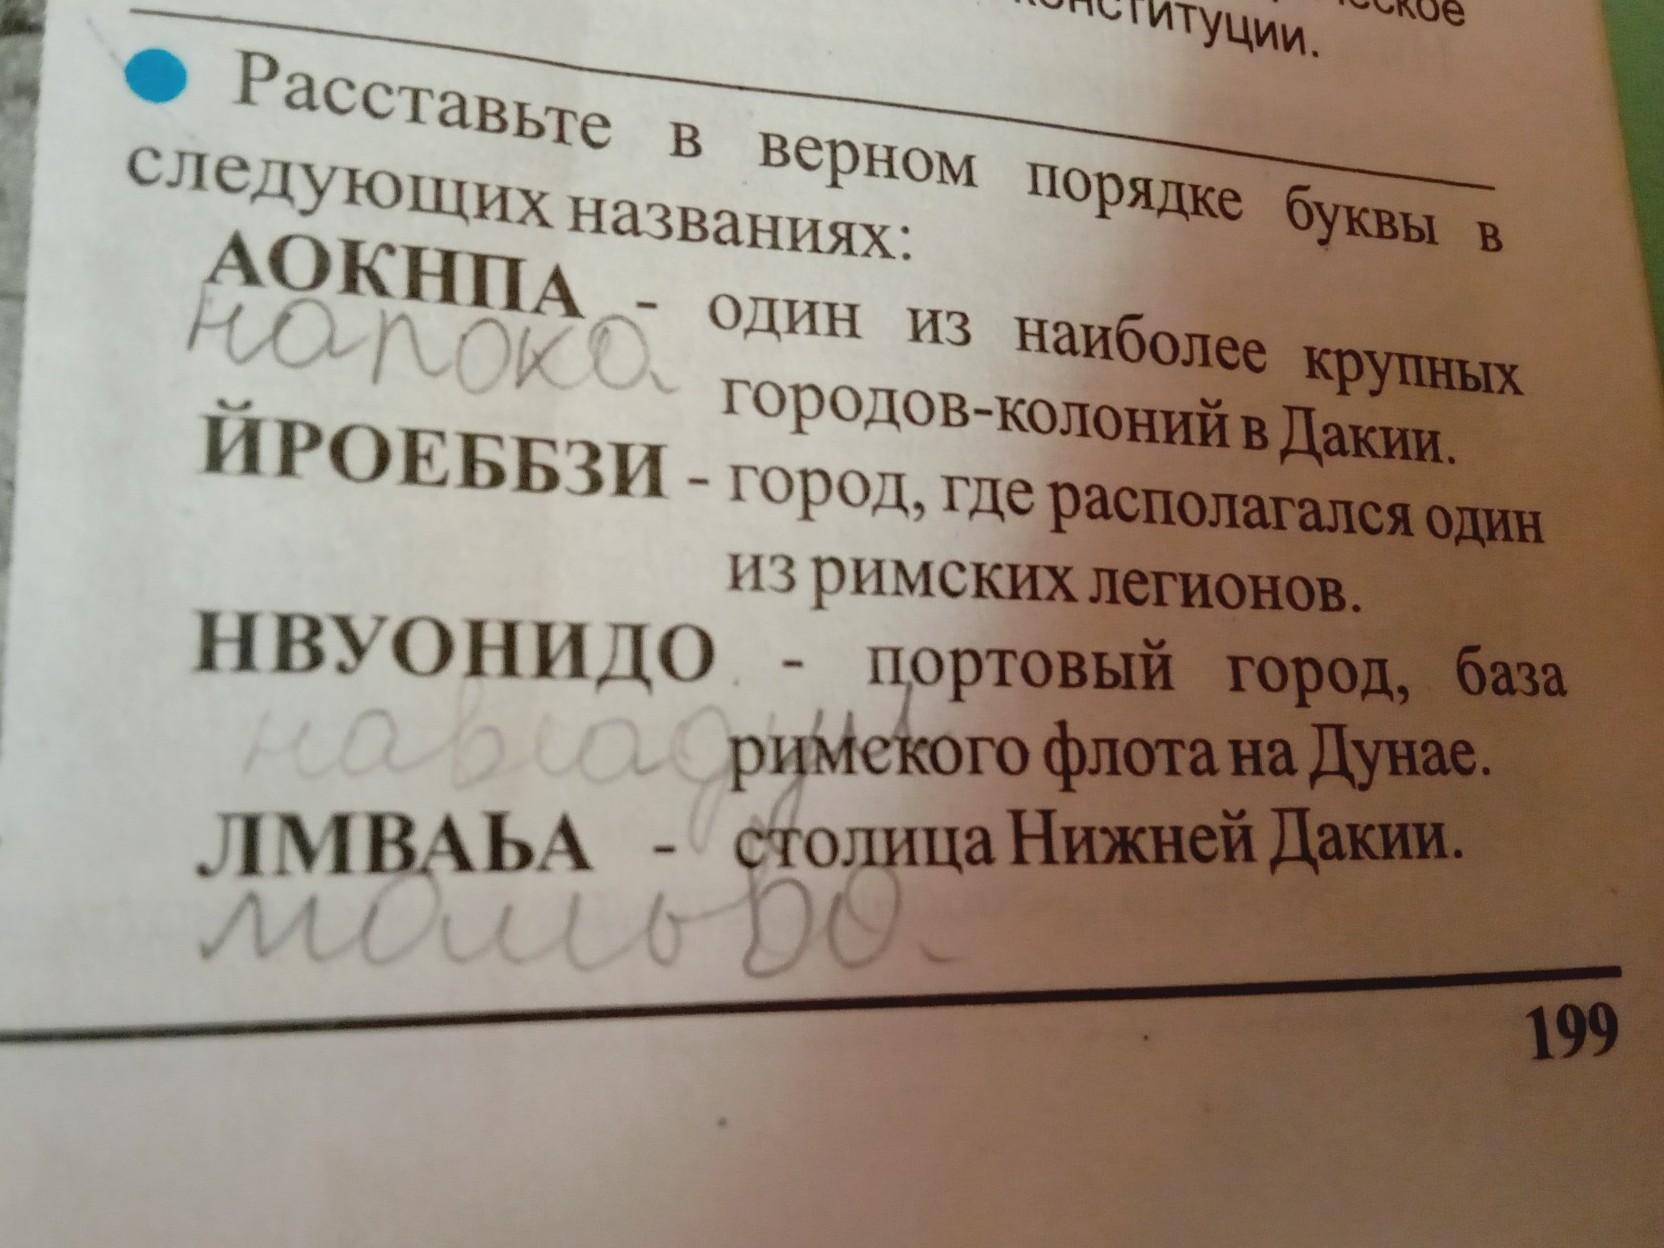 конституции.
Расставьте в верном порядке буквы в
следующих названиях:
АОКНПА - один из наиболее крупных
напока
городов-колоний в Дакии.
ЙРОЕББЗИ - город, где располагался один
из римских легионов.
НВУОНИДО - портовый город, база
римского флота на Дунае.
ЛМВАЬА - столица Нижней Дакии.
мальва
199